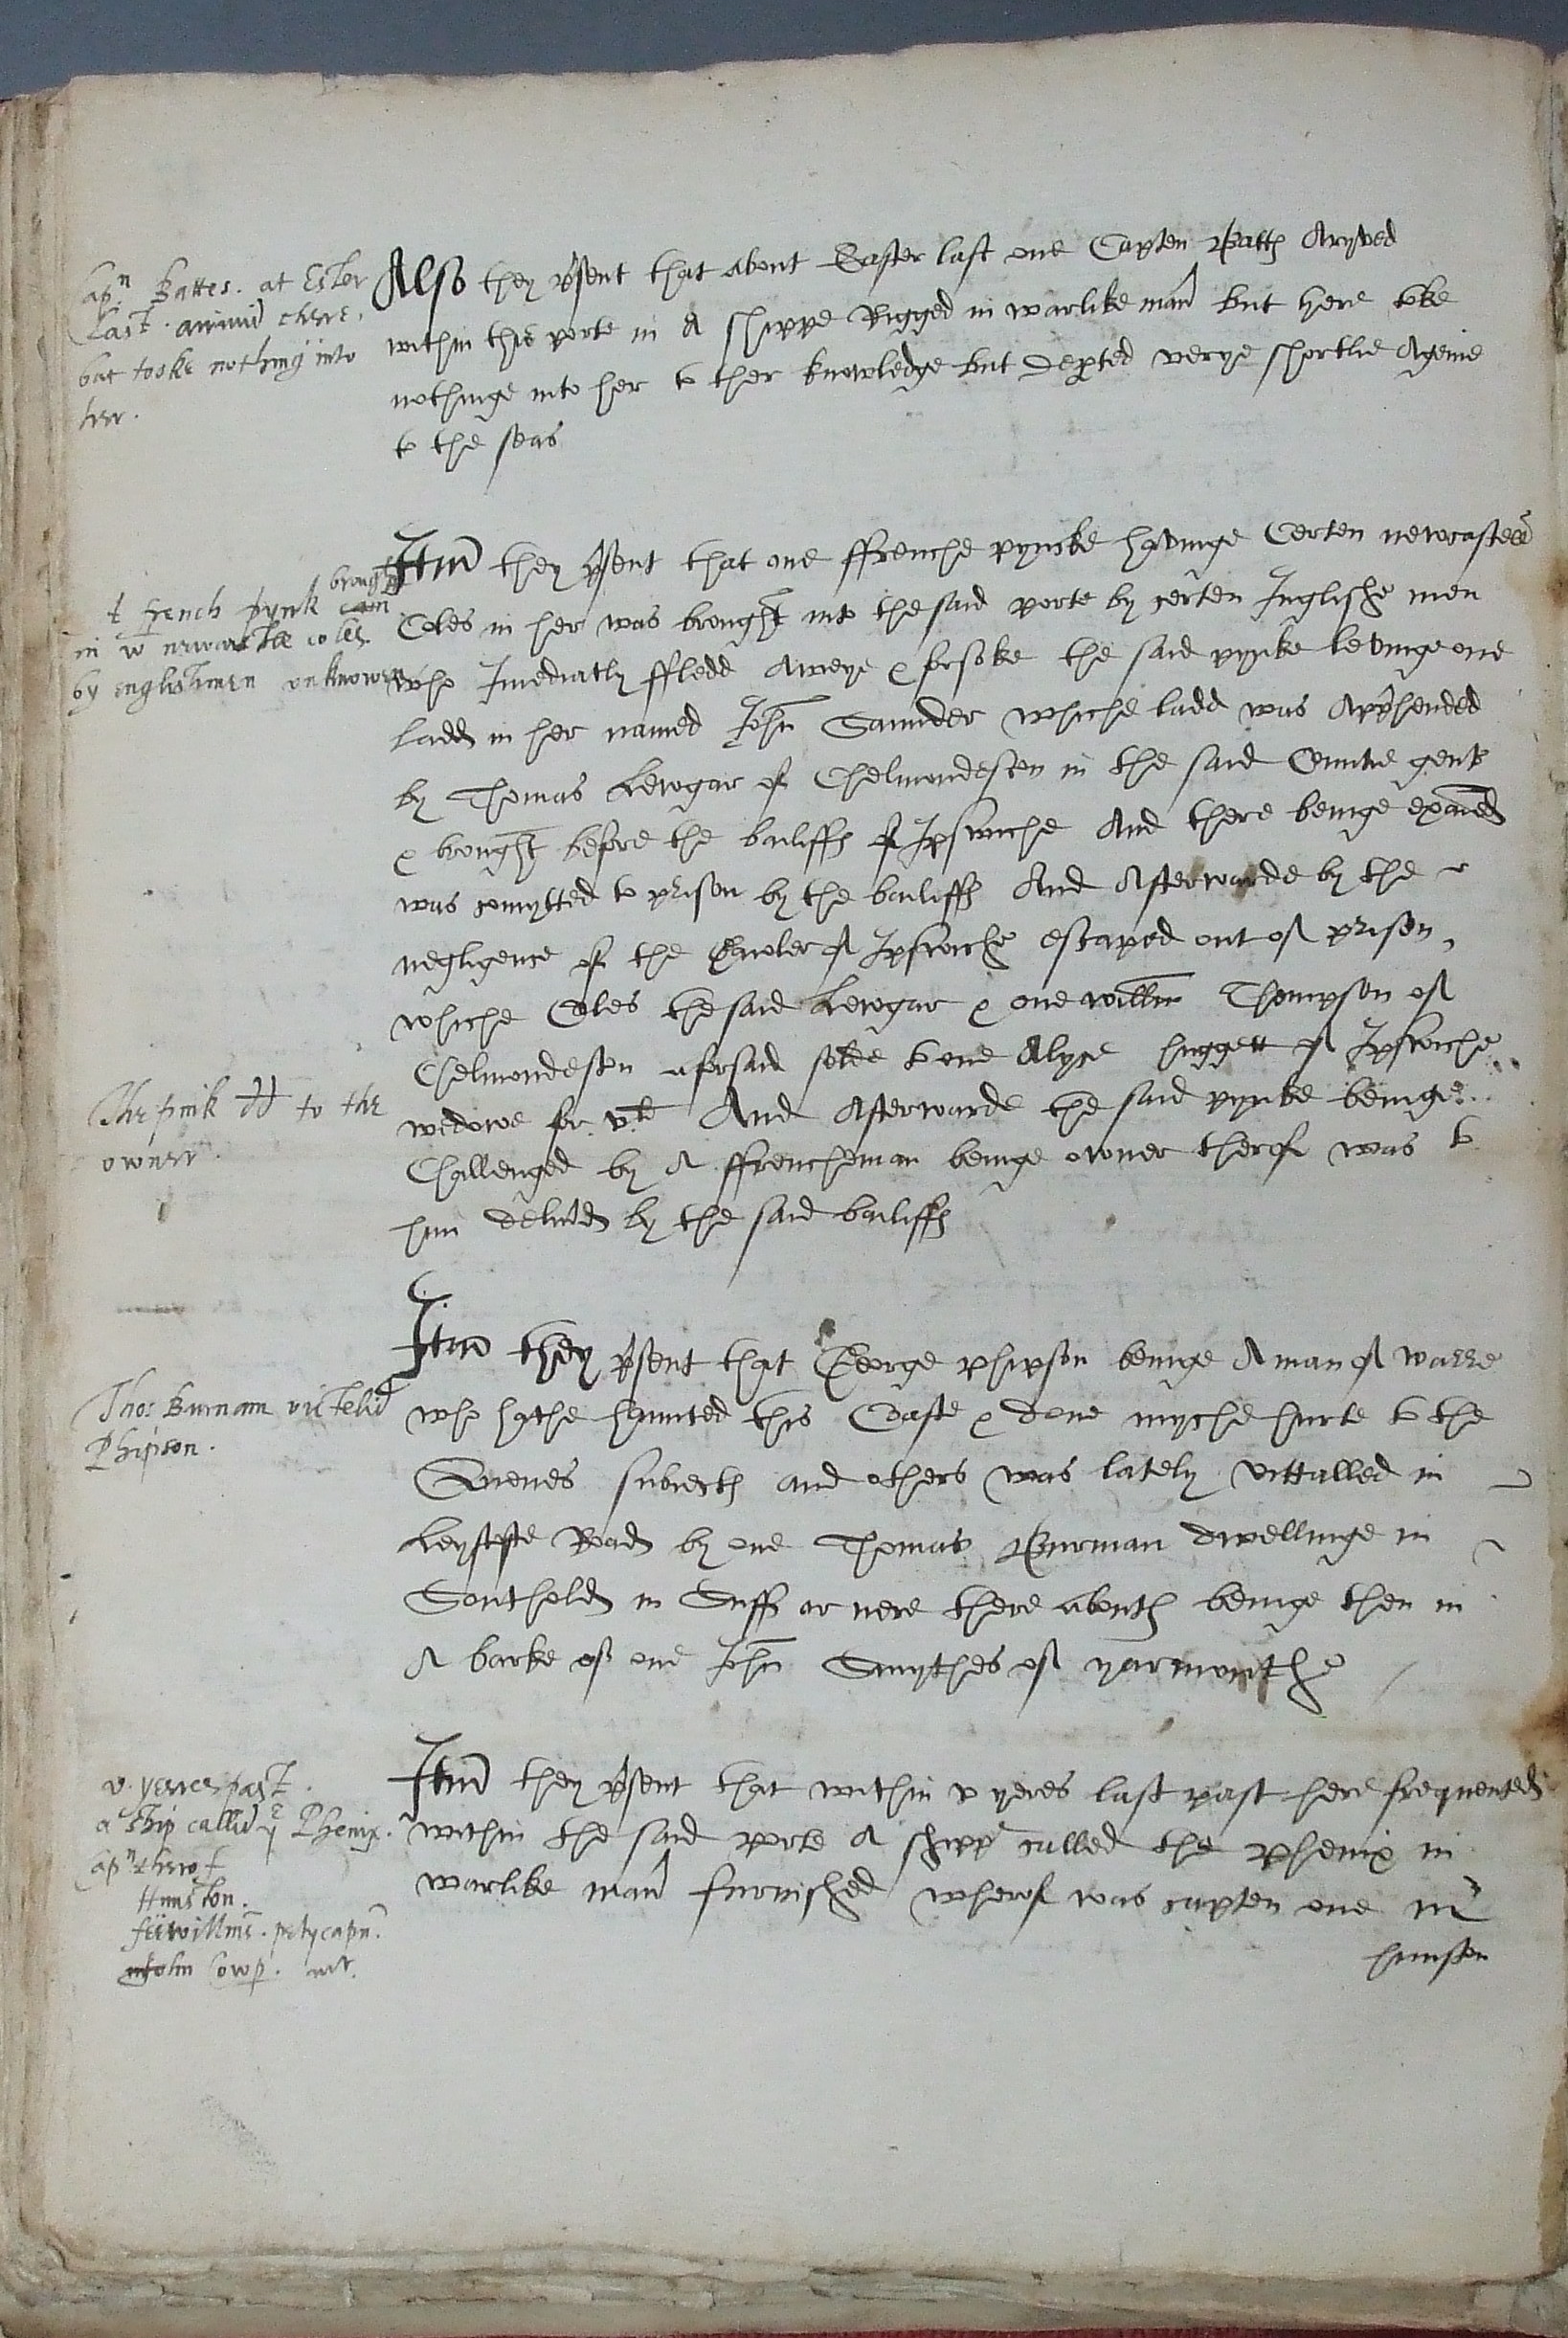 apn Battes. at Ester
last. arrivid there,
but tooke nothing into
her.
Also they psent that about Easter last one Capten Batts Aryved
within this porte in A shippe Rigged in warlike man but here toke
nothinge into her to ther knowledge but depted verye shortlie Ageine
to the seas
A french pynk brought
in wt newcastle coles
by englishmen unknowen
Itm they psent that one ffrenche pyncke havinge Certen newcastell
Coles in her was brought into the said porte by certen Inglishe men
who Imediatly ffledd Aweye & forsoke the said pynke levinge one
ladd in her named John Saunder whiche ladd was Apphended
by Thomas Lewgar of Chelmondeston in the said Countie gent
& brought before the bailiffs of Ipswiche And there beinge examed
was comytted to prison by the bailiffs And Afterwarde by the
negligence of the Gaoler of Ipswiche escaped out of prison,
whiche Coles the said Lewgar & one Willm Thompson of
Chelmondeston aforsaid solde to one Alyce huggett of Ipswiche
The pink dd to the
owner.
wedowe for vli And Afterwarde the said pynke beinge
Challenged by A ffrencheman beinge owner therof was to
him delivd by the said bailiffs
Tho: Burnam victelid
Phipson.
Itm they psent that George phipson beinge A man of warre
who hathe haunted this Coaste & done myche hurte to the
Quenes subiects and others was lately vittalled in
Leystofte Roads by one Thomas Burman dwellinge in
Southold in Suff or nere there abouts beinge then in
A barke of one John Smythes of yarmouthe
v. yeeres past.
a ship callid ye Phenix.
apn therof
Hunston.
ffr willms. petycapn.
John Cowp. mr.
Itm they psent that within v yeres last past here frequented
within the said porte A shipp called the phenix in
warlike man furnished wherof was capten one mr
hunston